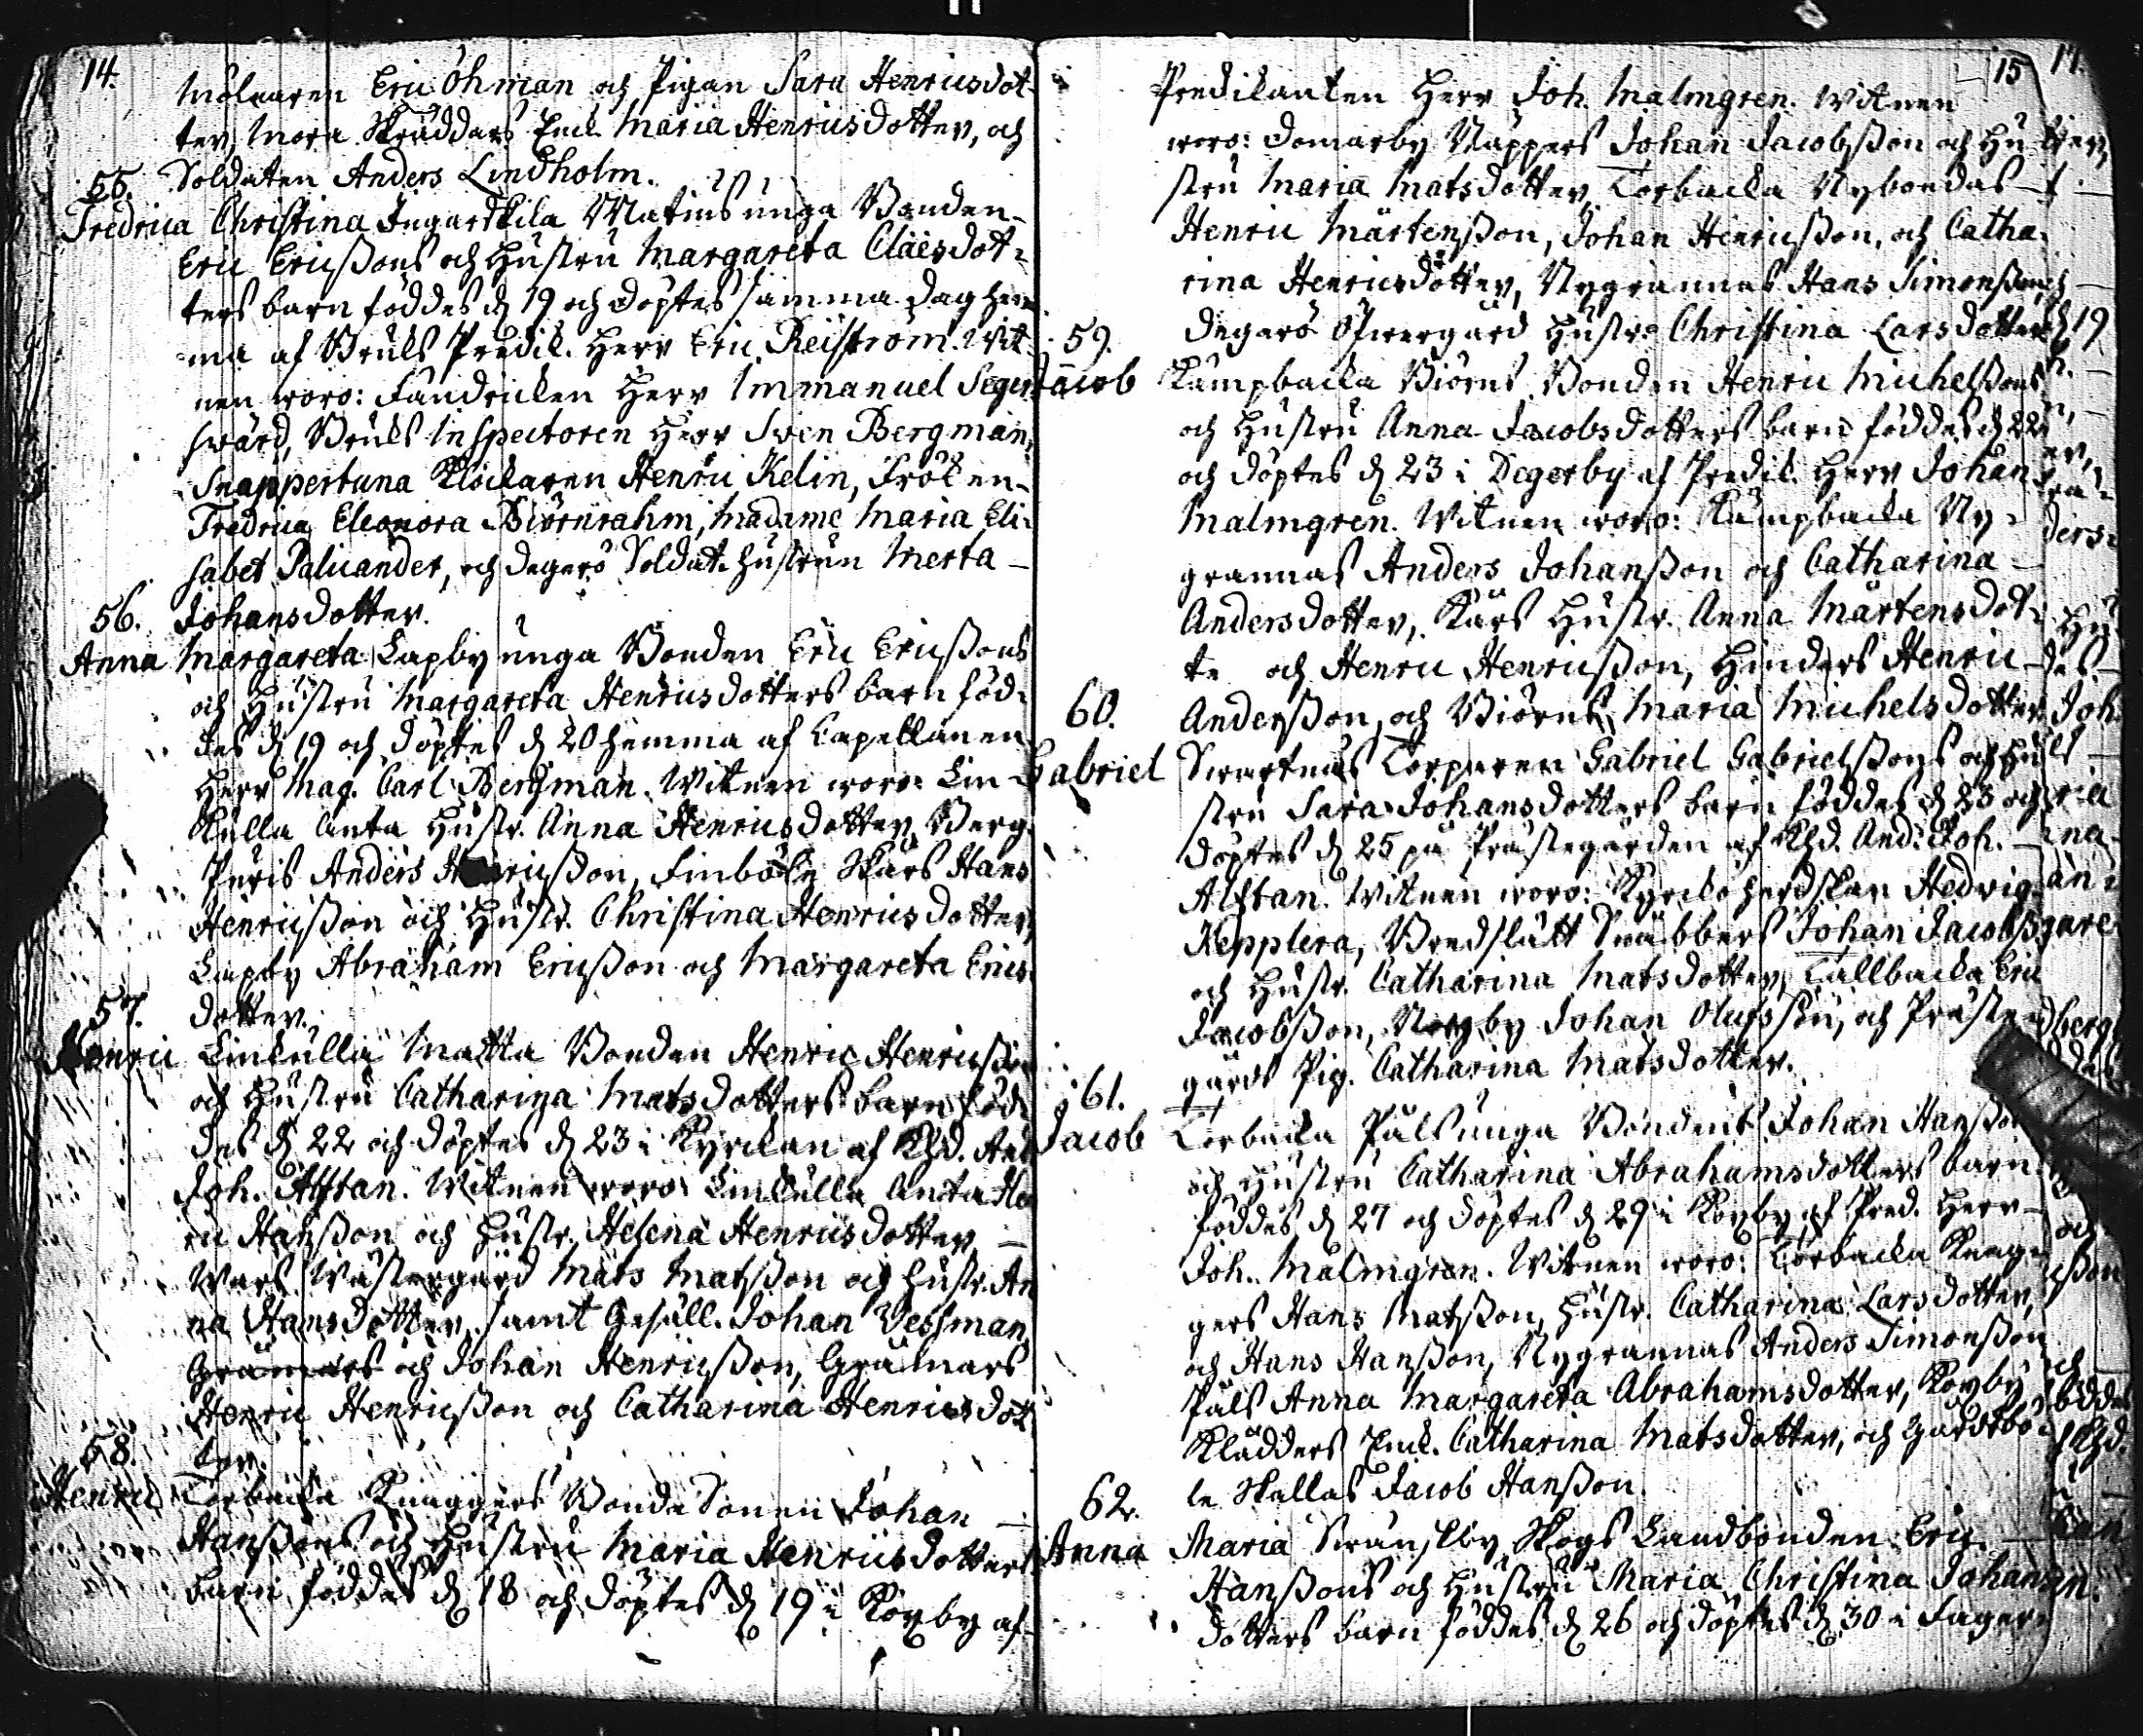 14.
Mölnaren Eric Öhman och Pigan Sara Henricsdot-
ter, Mora Skräddars Enck. Maria Henricsdotter, och
Soldaten Anders Lindholm.
55.
Fredrica Christina Ingarskila Matius unga Bonden
Eric Ericßons och Hustru Margareta Claesdot-
ters barn föddes d 19 och döptes samma dag hem-
ma af Bruks Predik. Herr Eric Reiström. Wit-
nen woro: Fendricken Herr Immanuel Seger
swärd, Bruks Inspectoren Herr Swen Bergman,
Snappertuna Klockaren Henric Kelin, Fröken
Fredrica Eleonora Biörnrahm, Madame Maria Eli-
sabet Palicander, och Degerö Soldat. hustrun Merta
Johansdotter.
56.
Anna Margareta Lapby unga Bonden Eric Ericßons
och Hustru Margareta Henricsdotters barn föd-
des d 19 och döptes d 20 hemma af Capellanen
Herr Mag. Carl Bergman. Witnen woro: Lin-
kulla Anta Hustr. Anna Henricsdotter, Berg
Anders Henricßon, Finböle Skärs Hans
Henricßon och Hustr. Christina Henricsdotter,
Lapby Abraham Ericßon och Margareta Erics-
dotter.
57.
Henric Linkulla Matta Bonden Henric Henricßons
och Hustru Catharina Matsdotters barn föd-
des d 22 och döptes d 23 i Kyrckan af Khd. And.
Joh. Alftan. Witnen woro: Linkulla Anta Hen
ric Hanßon och Hustr. Helena Henricsdotter
Wars Wästergård Mats Matsßon och Hustr. An
na Hansdotter, samt Gesäll. Johan Wessman
Grämars och Johan Henricßon, Grämars
Henric Henricßon och Catharina Henricsdot
ter.
58.
Henric Torbacka Knaggers Bonde Sonen Johan
Hanßons och Hustru Maria Henricsdotters
barn föddes d 18 och döptes d 19 i Köpby af
15
Predikanten Herr Joh. Malmgren. Witnen
woro: Domarby Näppers Johan Jacobsßon och Hu-
stru Maria Matsdotter, Torbacka Nybondas
Henric Mårtensßon, Johan Henricßon, och Catha-
rina Henricsdotter, Nygrannas Hans Simonßon,
Degerö Öfwergård Hustr. Christina Larsdotter
59.
Jacob Kämpbacka Biörns Bonden Henric Michelßons
och Hustru Anna Jacobsdotters barn föddes d 22
och döptes d 23 i Degerby af Predik. Herr Johan
Malmgren. Witnen woro: Kämpbacka Ny-
grannas Anders Johanßon och Catharina
Andersdotter, Kårs Hustr. Anna Mårtensdot-
te och Henric Henricßon, Hinders Henric
Anderßon, och Biörns Maria Michelsdotter.
60.
Gabriel Swartnäs Torparen Gabriel Gabrielßons och Hu
stru Sara Johansdotters barn föddes d 23 och
döptes d 25 på Prästegården af Khd. And. Joh.
Alftan. Witnen woro: Kyrckoherdskan Hedvig
Kepplera, Bredslätt Snäbbers Johan Jacobsß
och Hustr. Catharina Matsdotter, Tallbacka Eric
Jacobßon, Norrby Johan Olufsson, och Präste
gårds Pig. Catharina Matsdotter.
61.
Jacob Torbacka Påls unga Bondens Johan Hanßons
och Hustru Catharina Abrahamsdotters barn
föddes d 27 och döptes d 29 i Köpby af Pred. Herr
Joh. Malmgren. Witnen woro: Torbacka Knag-
gers Hans Matsßon, Hustr. Catharina Larsdotter,
och Hans Hanßon, Nygrannas Anders Simonßon
Påls Anna Margareta Abrahamsdotter, Köpby
Klädders Enck. Catharina Matsdotter, och Gårdsbö-
le Skallas Jacob Hanßon.
62.
Anna Maria Swanskby Skogs Landbonden Eric
Hanßons och Hustru Maria Christina Johans
dotters barn föddes d 26 och döptes d 30 i Fager